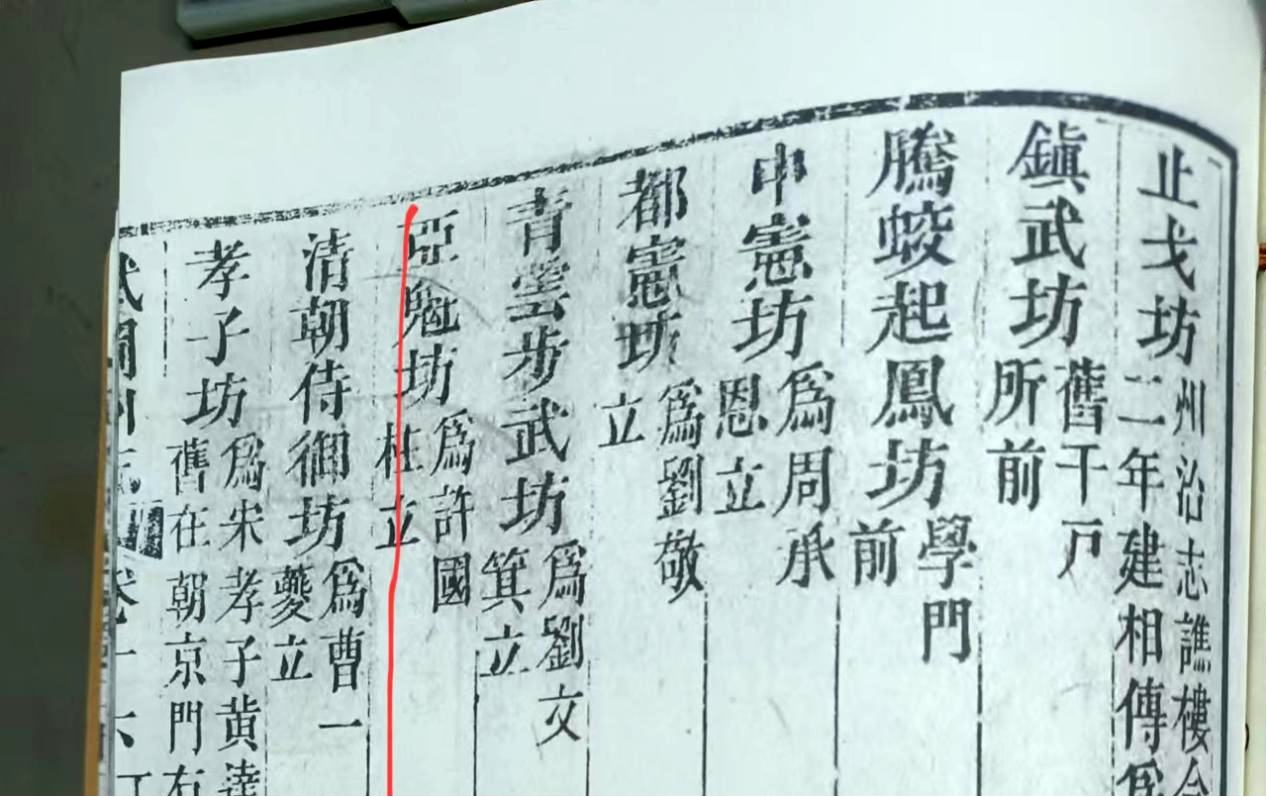 止戈坊州治志譙樓今
二年建相傳爲
鎮武坊舊千戸
所前
騰蛟起鳳坊學門
前
中憲坊爲周承
恩立
都憲坊爲劉敬
立
青雲步武坊爲劉文
箕立
亞魁坊爲許國
柱立
清朝侍御坊爲曹一
夔立
孝子坊爲宋孝子黄達
舊在朝京門右
武岡州志 卷十六